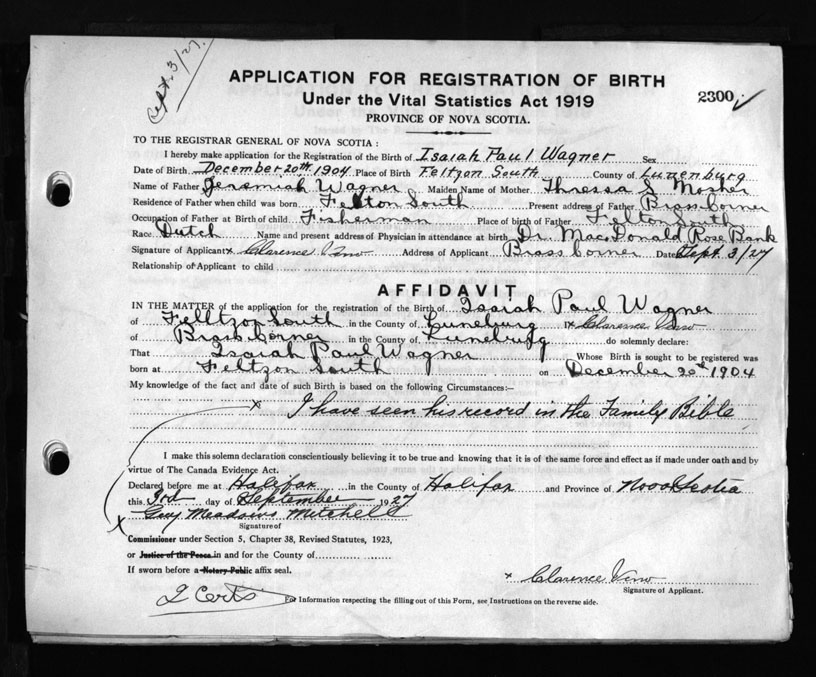 Sept. 3/27.
APPLICATION FOR REGISTRATION OF BIRTH
Under the Vital Statistics Act 1919
2300 ✓
PROVINCE OF NOVA SCOTIA.
TO THE REGISTRAR GENERAL OF NOVA SCOTIA :
I hereby make application for the Registration of the Birth of Isaiah Paul Wagner Sex
Date of Birth December 20th 1904 Place of Birth Feltzon South County of Lunenburg
Name of Father Jeremiah Wagner Maiden Name of Mother Thressa S Mosher
Residence of Father when child was born Felton South Present address of Father Brass corner
Occupation of Father at Birth of child Fisherman Place of birth of Father Felton South
Race Dutch Name and present address of Physician in attendance at birth Dr. MacDonald Rose Bank
Signature of Applicant x Clarence Address of Applicant Brass corner Date Sept. 3/27
Relationship of Applicant to child
AFFIDAVIT
IN THE MATTER of the application for the registration of the Birth of Isaiah Paul Wagner
of Felltzon South in the County of Luneburg x Clarence
of Brass Corner in the County of do solemnly declare:
That Isaiah Paul Wagner Whose Birth is sought to be registered was
born at Feltzon South on December 20 1904
My knowledge of the fact and date of such Birth is based on the following Circumstances:—
x I have seen his record in the Family Bible
I make this solemn declaration conscientiously believing it to be true and knowing that it is of the same force and effect as if made under oath and by
virtue of The Canada Evidence Act.
Declared before me at Halifax in the County of Halifax and Province of Nova Scotia
this 3rd day of September 1927
x Guy Meadows Mitchell
Signature of
Commissioner under Section 5, Chapter 38, Revised Statutes, 1923,
or Justice of the Peace in and for the County of
If sworn before a Notary Public affix seal.
x Clarence
Signature of Applicant.
2 Certs
For Information respecting the filling out of this Form, see Instructions on the reverse side.